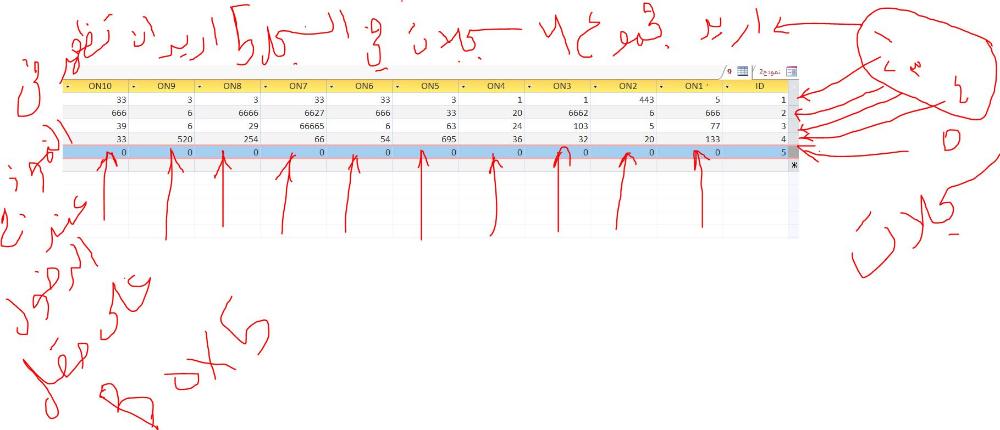 اريد مجموع ال سجلات في السجل 5 اريد ان تظهر في
نموذج2
9
ON10 ON9 ON8 ON7 ON6 ON5 ON4 ON3 ON2 ON1 ID
33 3 3 33 33 3 1 1 443 5 1
666 6 6666 6627 666 33 20 6662 6 666 2
39 6 29 66665 6 63 24 103 5 77 3
33 520 254 66 54 695 36 32 20 133 4
0 0 0 0 0 0 0 0 0 0 5
النموذج
عند
على حقل
box5
سجلات